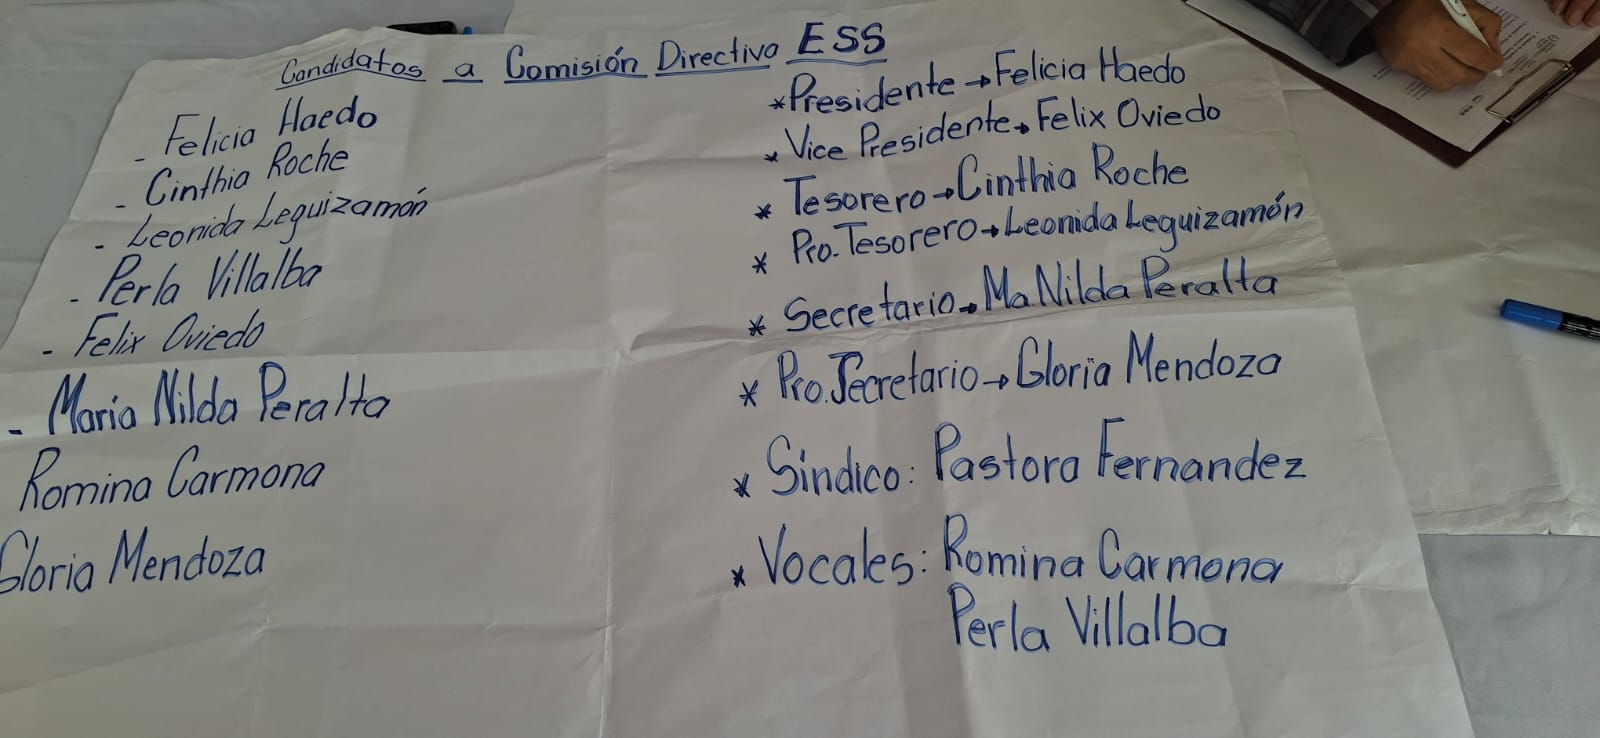 Candidatos a Comisión Directiva ESS
- Felicia Haedo
- Cinthia Roche
- Leonida Leguizamón
- Perla Villalba
- Felix Oviedo
- Maria Nilda Peralta
Romina Carmona
Gloria Mendoza
* Presidente → Felicia Haedo
* Vice Presidente → Felix Oviedo
* Tesorero → Cinthia Roche
* Pro. Tesorero → Leonida Leguizamón
* Secretario → Ma Nilda Peralta
* Pro. Secretario → Gloria Mendoza
* Sindico: Pastora Fernandez
* Vocales: Romina Carmona
Perla Villalba